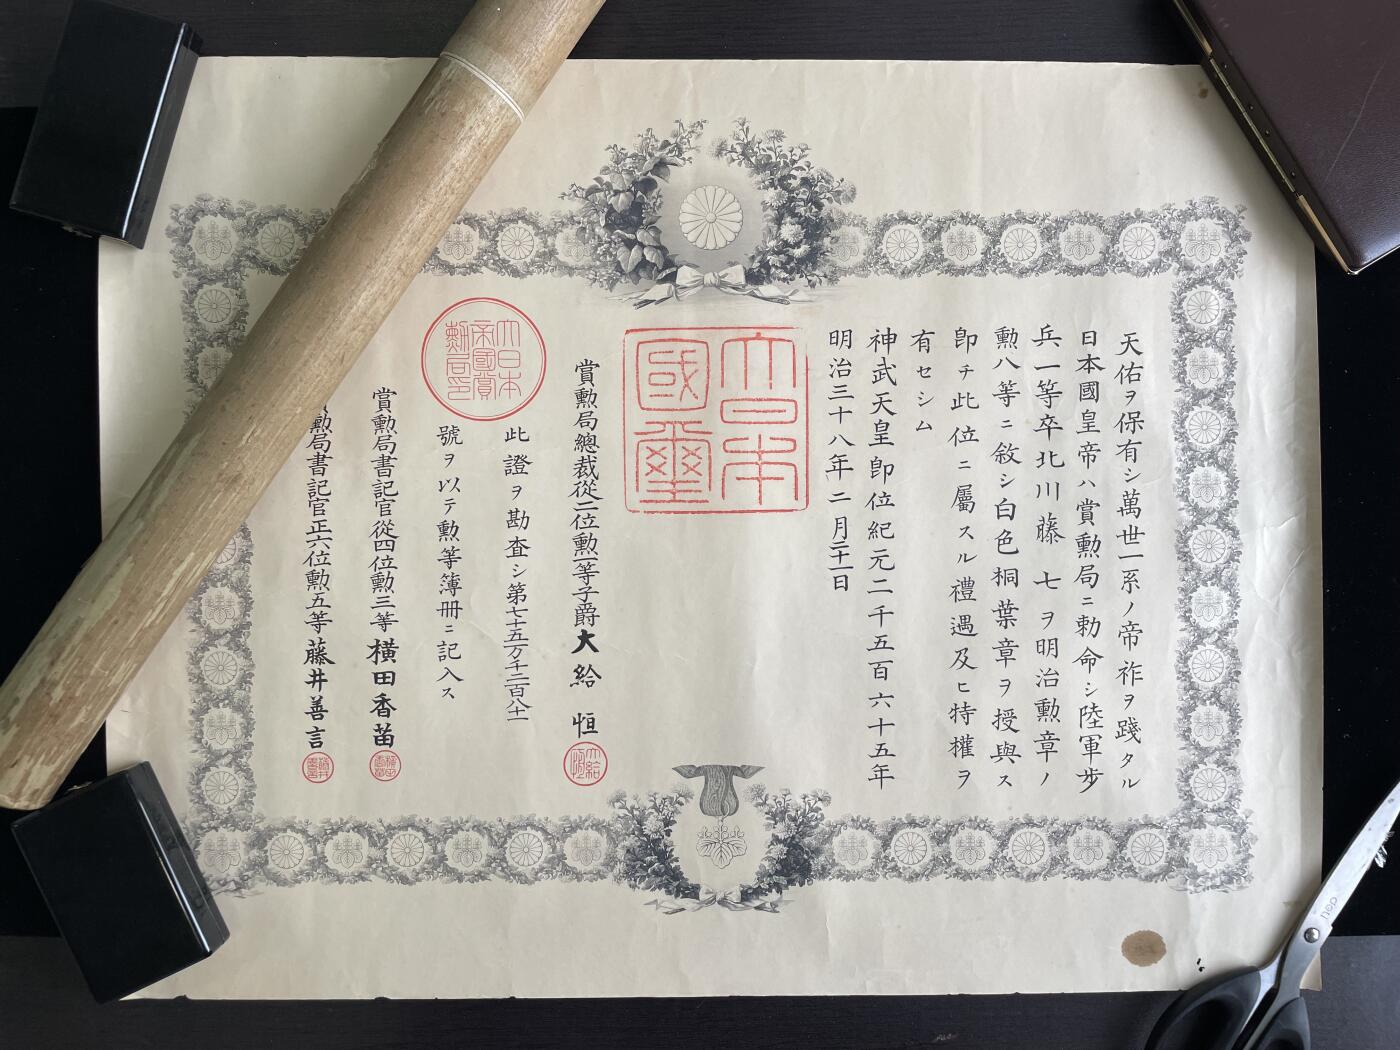 天佑ヲ保有シ萬世一系ノ帝祚ヲ踐タル
日本國皇帝ハ賞勲局ニ勅命シ陸軍歩
兵一等卒北川藤七ヲ明治勲章ノ
勲八等ニ敘シ白色桐葉章ヲ授與ス
卽チ此位ニ屬スル禮遇及ヒ特權ヲ
有セシム
神武天皇卽位紀元二千五百六十五年
明治三十八年二月二十一日
大日本
國璽
賞勲局總裁從二位勲一等子爵大給恒
大給恒
此證ヲ勘査シ第七十五万千二百八十一
號ヲ以テ勲等簿冊ニ記入ス
大日本
帝國賞
勲局印
賞勲局書記官從四位勲三等横田香苗
勲局書記官正六位勲五等藤井善言